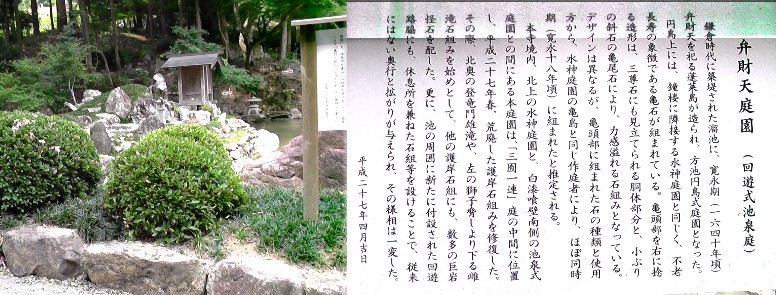 弁財天庭園 (回遊式池泉庭)
鎌倉時代に築堤された溜池に、寛永期(一六四十年頃)
弁財天を祀る蓬莱島が造られ、方池円島式庭園となった。
円島上には、鐘楼に隣接する水神庭園と同じく、不老
長寿の象徴である亀石が組まれている。亀頭部を右に捻
る造形は、三尊石にも見立てられる胴体部分と、小ぶり
の斜石の亀尾石により、力感溢れる石組みとなっている。
デザインは異なるが、亀頭部に組まれた石の種類と使用
方から、水神庭園の亀島と同じ作庭者により、ほぼ同時
期(寛永十八年頃)に組まれたと推定される。
本寺境内、北上の水神庭園と、白漆喰壁南側の池泉式
庭園との間にある本庭園は「三園一連」庭の中間に位置
し、平成二十七年春、荒廃した護岸石組みを修復した。
その際、北奥の登竜門雄滝や、左の獅子脅しより下る雌
滝石組みを始めとして、他の護岸石組にも、数多の巨岩
怪石を配した。更に、池の周囲に新たに付設された回遊
路脇にも、休息所を兼ねた石組等を設けることで、従来
にはない奥行と拡がりが与えられ、その様相は一変した。
平成二十七年四月吉日